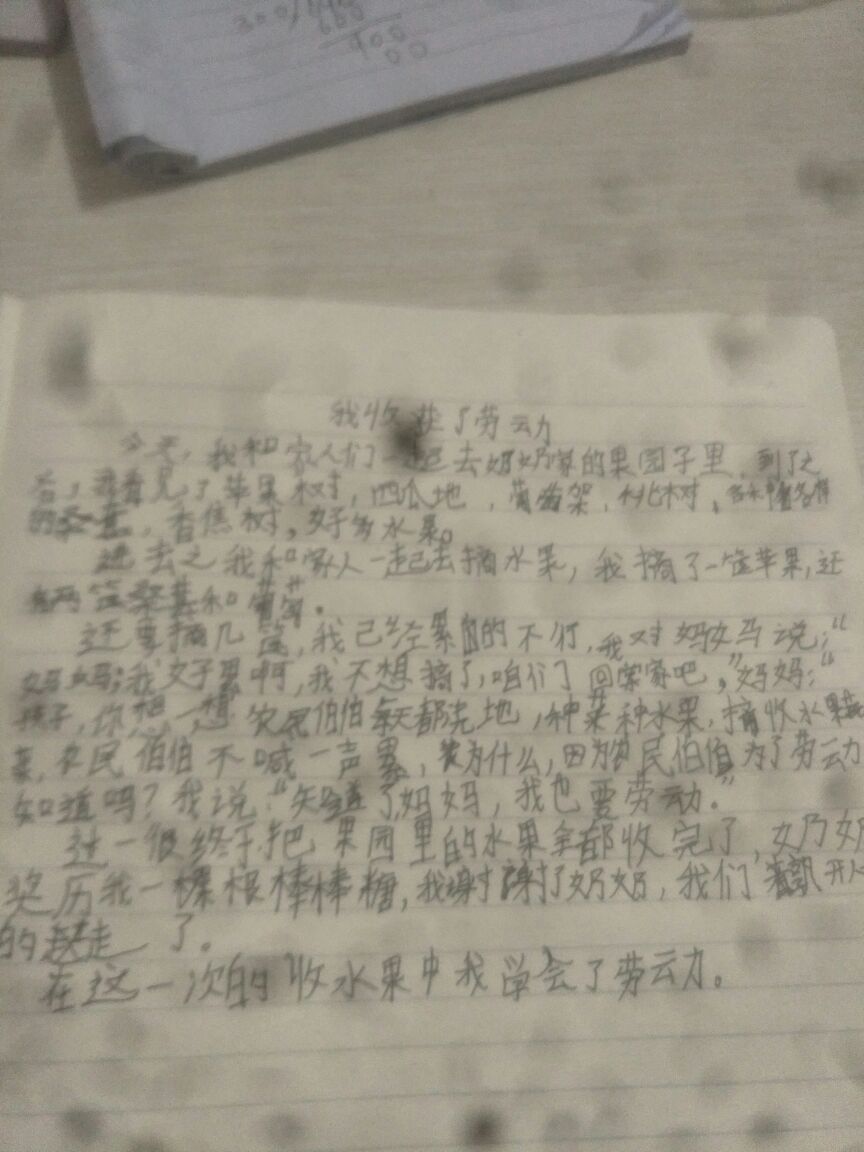 300
900
00
我收
了劳动
今天，我和家人们一起去奶奶家的果园子里，到了之
后，我看见了苹果树，西瓜地，葡萄架，桃树，
的桑葚，香焦树，好多水果。
进去之我和家人一起去摘水果，我摘了一筐苹果，还
有两筐桑葚和葡萄。
还要摘几筐，我己经累的不行，我对妈妈说：“
妈妈：我好累啊，我不想摘了，咱们回家吧。”妈妈：“
孩子，你想一想农民伯伯每天都去地，种菜种水果，摘收水果
菜，农民伯伯不喊一声累，为什么，因为农民伯伯为了劳动
知道吗？我说：“知道了妈妈，我也要劳动。”
过一很终于把果园里的水果全都收完了，奶奶
奖历我一根棒棒糖，我谢谢奶奶，我们开心
的走了。
在这一次的收水果中我学会了劳动。